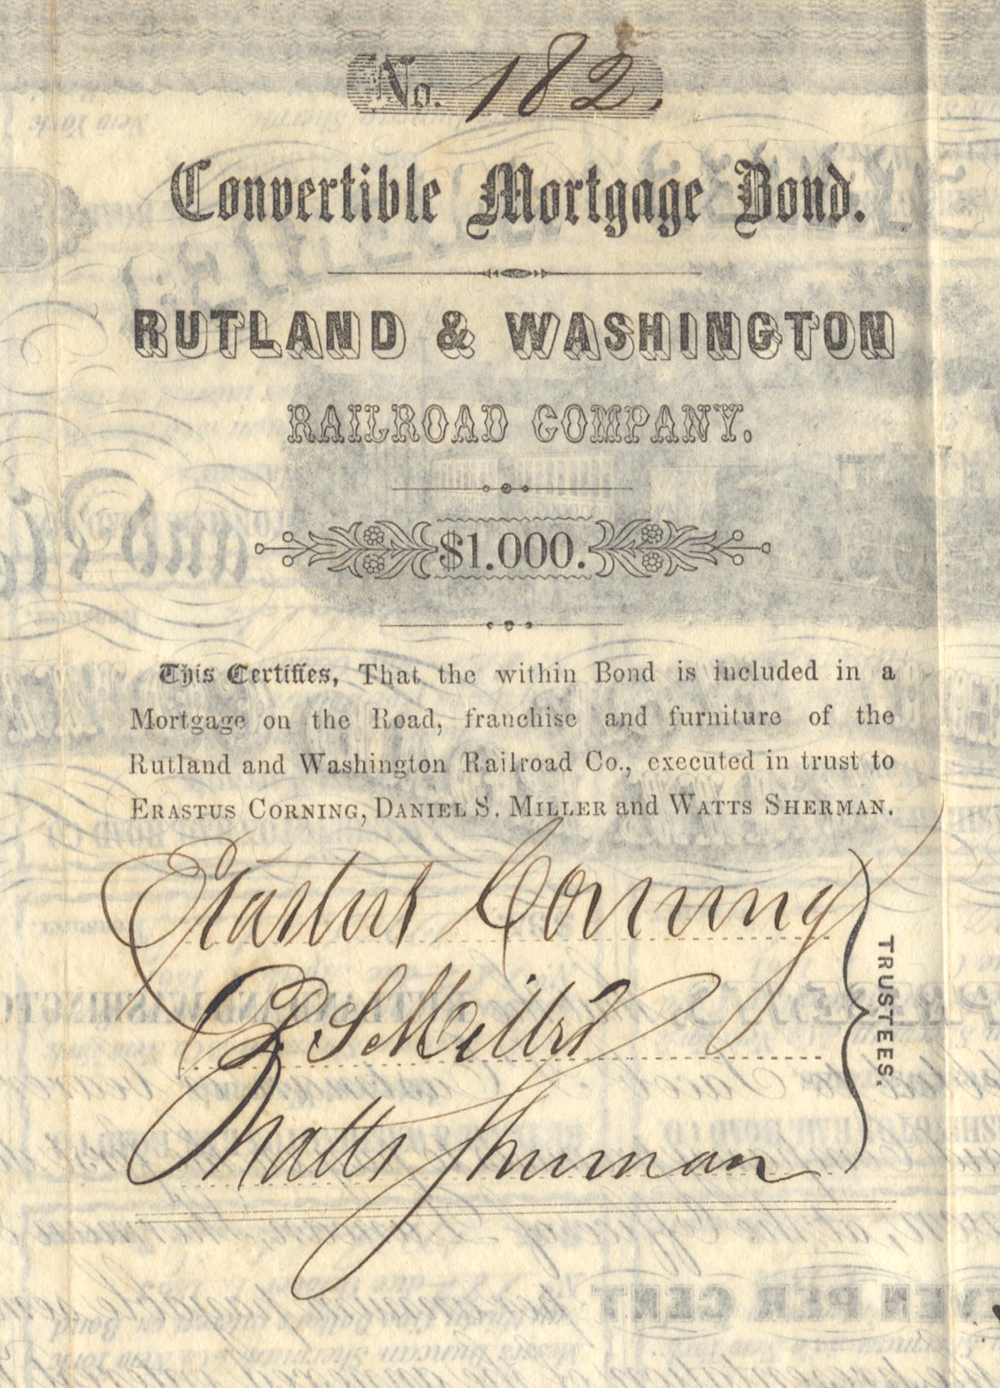 No. 182.
Convertible Mortgage Bond.
RUTLAND & WASHINGTON
RAILROAD COMPANY.
$1.000.
This Certifies, That the within Bond is included in a
Mortgage on the Road, franchise and furniture of the
Rutland and Washington Railroad Co., executed in trust to
ERASTUS CORNING, DANIEL S. MILLER and WATTS SHERMAN.
Erastus Corning
D. S. Miller
Watts Sherman
TRUSTEES.